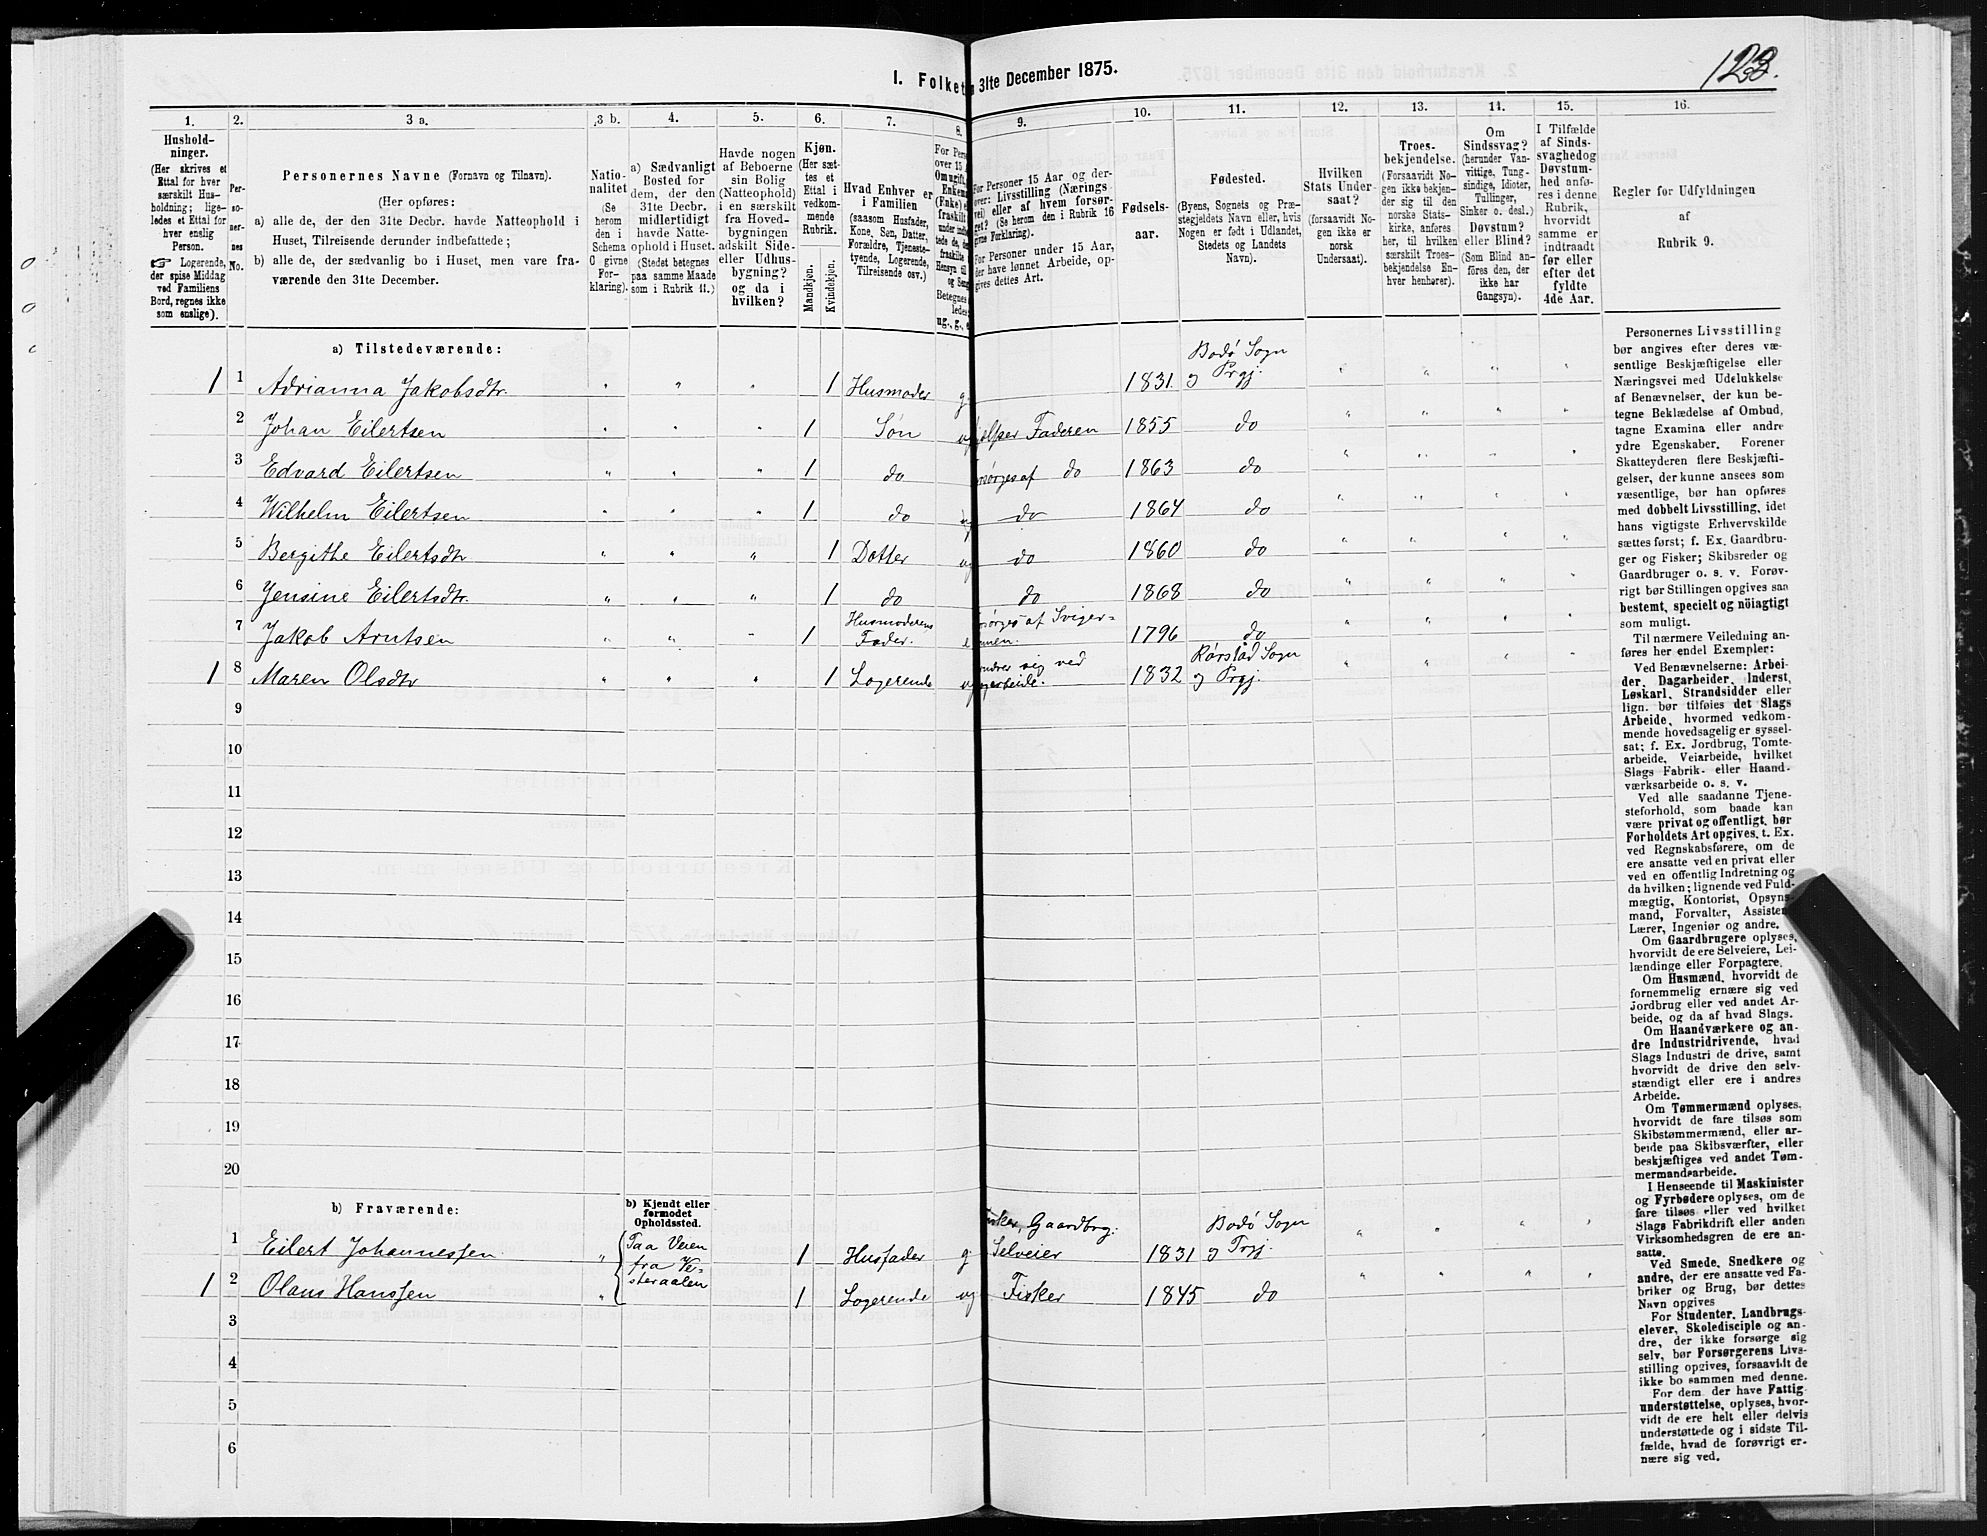 123.
I. Folket
n 31te December 1875.
1.
2.
3 a.
3 b.
4.
5.
6.
7.
8.
9.
10.
11.
12.
13.
14.
15.
16.
Hushold-
ninger.
(Her skrives et
Ettal for hver
særskilt Hus-
holdning; lige-
ledes et Ettal for
hver enslig
Person.
☞ Logerende,
der spise Middag
ved Familiens
Bord, regnes ikke
som enslige).
Per-
so-
ner-
nes
No.
Personernes Navne (Fornavn og Tilnavn).
(Her opføres:
a) alle de, der den 31te Decbr. havde Natteophold i
Huset, Tilreisende derunder indbefattede;
b) alle de, der sædvanlig bo i Huset, men vare fra-
værende den 31te December.
Natio-
nalitet
(Se
herom
den i
Schema
C givne
For-
klaring).
a) Sædvanligt
Bosted for
dem, der den
31te Decbr.
midlertidigt
havde Natte-
ophold i Huset.
(Stedet betegnes
paa samme Maade
som i Rubrik 11.)
Havde nogen
af Beboerne
sin Bolig
(Natteophold)
i en særskilt
fra Hoved-
bygningen
adskilt Side-
eller Udhus-
bygning?
og da i
hvilken?
Kjøn.
(Her sæt-
tes et
Ettal i
vedkom-
mende
Rubrik.
Mandkjøn.
Kvindekjøn.
Hvad Enhver er
i Familien
(saasom Husfader,
Kone, Søn, Datter,
Forældre, Tjeneste-
tyende, Logerende,
Tilreisende osv.)
For Pers
over 15
Omugift,
Enkem
(Enke)
fraskilt
under indbe
tede de,
fraskilte
Hensyn til
og Sen
Betegnes
ledes:
ug., g., e
For Personer 15 Aar og der-
over: Livsstilling (Nærings
vei) eller af hvem forsør-
get? (Se herom den i Rubrik 16
givne Forklaring).
For Personer under 15 Aar,
der have lønnet Arbeide, op-
gives dettes Art.
Fødsels-
aar.
Fødested.
(Byens, Sognets og Præ-
stegjeldets Navn eller, hvis
Nogen er født i Udlandet,
Stedets og Landets
Navn).
Hvilken
Stats Under-
saat?
(forsaavidt No-
gen ikke er
norsk
Undersaat).
Troes-
bekjendelse.
(Forsaavidt No-
gen ikke bekjen-
der sig til den
norske Stats-
kirke, anføres
her, til hvilken
særskilt Troes-
bekjendelse En-
hver henhører).
Om
Sindssvag?
(herunder Van-
vittige, Tung-
sindige, Idioter,
Tullinger,
Sinker o. desl.)
Døvstum?
eller Blind?
(Som Blind an-
føres den, der
ikke har
Gangsyn).
I Tilfælde
af Sinds-
svaghed og
Døvstum-
hed anfø-
res i denne
Rubrik,
hvorvidt
samme er
indtraadt
før eller
efter det
fyldte
4de Aar.
Regler for Udfyldningen
af
Rubrik 9.
a) Tilstedeværende:
Bodø Sogn
1 1 Adrianna Jakobsdtr. " " " 1 Husmoder g. 1831. og Prgj. " " " "
2 Johan Eilertsen " " " 1 Søn ug jelper Faderen 1855 do " " " "
3 Edvard Eilertsen " " " 1 do orsørges af do 1863 do " " " "
4 Wilhelm Eilertsen " " " 1 do do 1864 do " " " "
5 Bergithe Eilertsdtr " " " 1 Datter ug do 1860 do " " " "
6 Jensine Eilertsdtr. " " " 1 do do 1868 do " " " "
Husmoderens orsørges af Sviger=
7 Jakob Arntsen " " " 1 Fader. e 1796 do " " " "
ernærer sig ved Rørstad Sogn
1 8 Maren Olsdtr " " " 1 Logerende ug arbeide. 1832 og Prgj. " " " "
9
10
11
12
13
14
15
16
17
18
19
20
b) Fraværende:
b) Kjendt eller
formodet
Opholdssted.
isker, Gaardbrg. Bodø Sogn
1 Eilert Johannessen " Paa Veien 1 Husfader g. Selveier 1831 og Prgj. " " " "
fra Ve-
1 2 Olaus Hanssen " steraalen 1 Logerende ug Fisker 1845 do " " " "
3
4
5
6
Personernes Livsstilling
bør angives efter deres væ-
sentlige Beskjæftigelse eller
Næringsvei med Udelukkelse
af Benævnelser, der kun be-
tegne Beklædelse af Ombud,
tagne Examina eller andre
ydre Egenskaber. Forener
Skatteyderen flere Beskjæfti-
gelser, der kunne ansees som
væsentlige, bør han opføres
med dobbelt Livsstilling, idet
hans vigtigste Erhvervskilde
sættes først; f. Ex. Gaardbru-
ger og Fisker; Skibsreder og
Gaardbruger o. s. v. Forøv-
rigt bør Stillingen opgives saa
bestemt, specielt og nöiagtigt
som muligt.
Til nærmere Veiledning an-
føres her endel Exempler:
Ved Benævnelserne: Arbei-
der, Dagarbeider, Inderst,
Løskarl, Strandsidder eller
lign. bør tilføies det Slags
Arbeide, hvormed vedkom-
mende hovedsagelig er syssel-
sat; f. Ex. Jordbrug, Tomte-
arbeide, Veiarbeide, hvilket
Slags Fabrik- eller Haand-
værksarbeide o. s. v.
Ved alle saadanne Tjene-
steforhold, som baade kan
være privat og offentligt, bør
Forholdets Art opgives, t. Ex.
ved Regnskabsførere, om de
ere ansatte ved en privat eller
ved en offentlig Indretning og
da hvilken; lignende ved Fuld-
mægtig, Kontorist, Opsyns-
mand, Forvalter, Assistent,
Lærer, Ingeniør og andre.
Om Gaardbrugere oplyses,
hvorvidt de ere Selveiere, Lei-
lændinge eller Forpagtere.
Om Husmænd, hvorvidt de
fornemmelig ernære sig ved
Jordbrug eller ved andet Ar-
beide, og da af hvad Slags.
Om Haandværkere og an-
dre Industridrivende, hvad
Slags Industri de drive, samt
hvorvidt de drive den selv-
stændigt eller ere i andres
Arbeide.
Om Tømmermænd oplyses,
hvorvidt de fare tilsøs som
Skibstømmermænd, eller ar-
beide paa Skibsværfter, eller
beskjæftiges ved andet Tøm-
mermandsarbeide.
I Henseende til Maskinister
og Fyrbødere oplyses, om de
fare tilsøs eller ved hvilket
Slags Fabrikdrift eller anden
Virksomhedsgren de ere an-
satte.
Ved Smede, Snedkere og
andre, der ere ansatte ved Fa-
briker og Brug, bør dettes
Navn opgives
For Studenter, Landbrugs-
elever, Skoledisciple og an-
dre, der ikke forsørge sig
selv, bør Forsørgerens Livs-
stilling opgives, forsaavidt de
ikke bo sammen med denne.
For dem, der have Fattig-
understøttelse, oplyses, hvor-
vidt de ere helt eller delvis
understøttede og i sidste Til-
fælde, hvad de forøvrigt er-
nære sig ved.